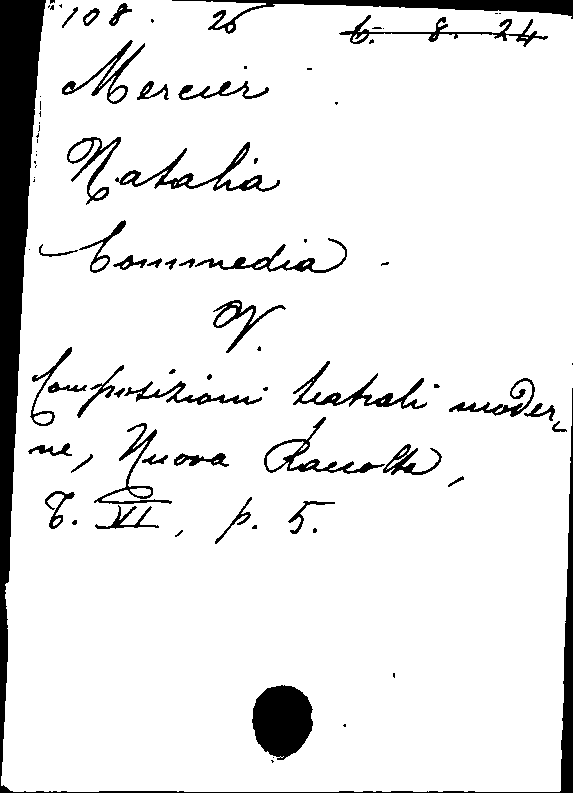 108. 26 6. 8. 24
Mercier
Natalia
Commedia.
V.
Composizioni teatrali moder-
ne, Nuova Raccolta,
T. VI, p. 5.